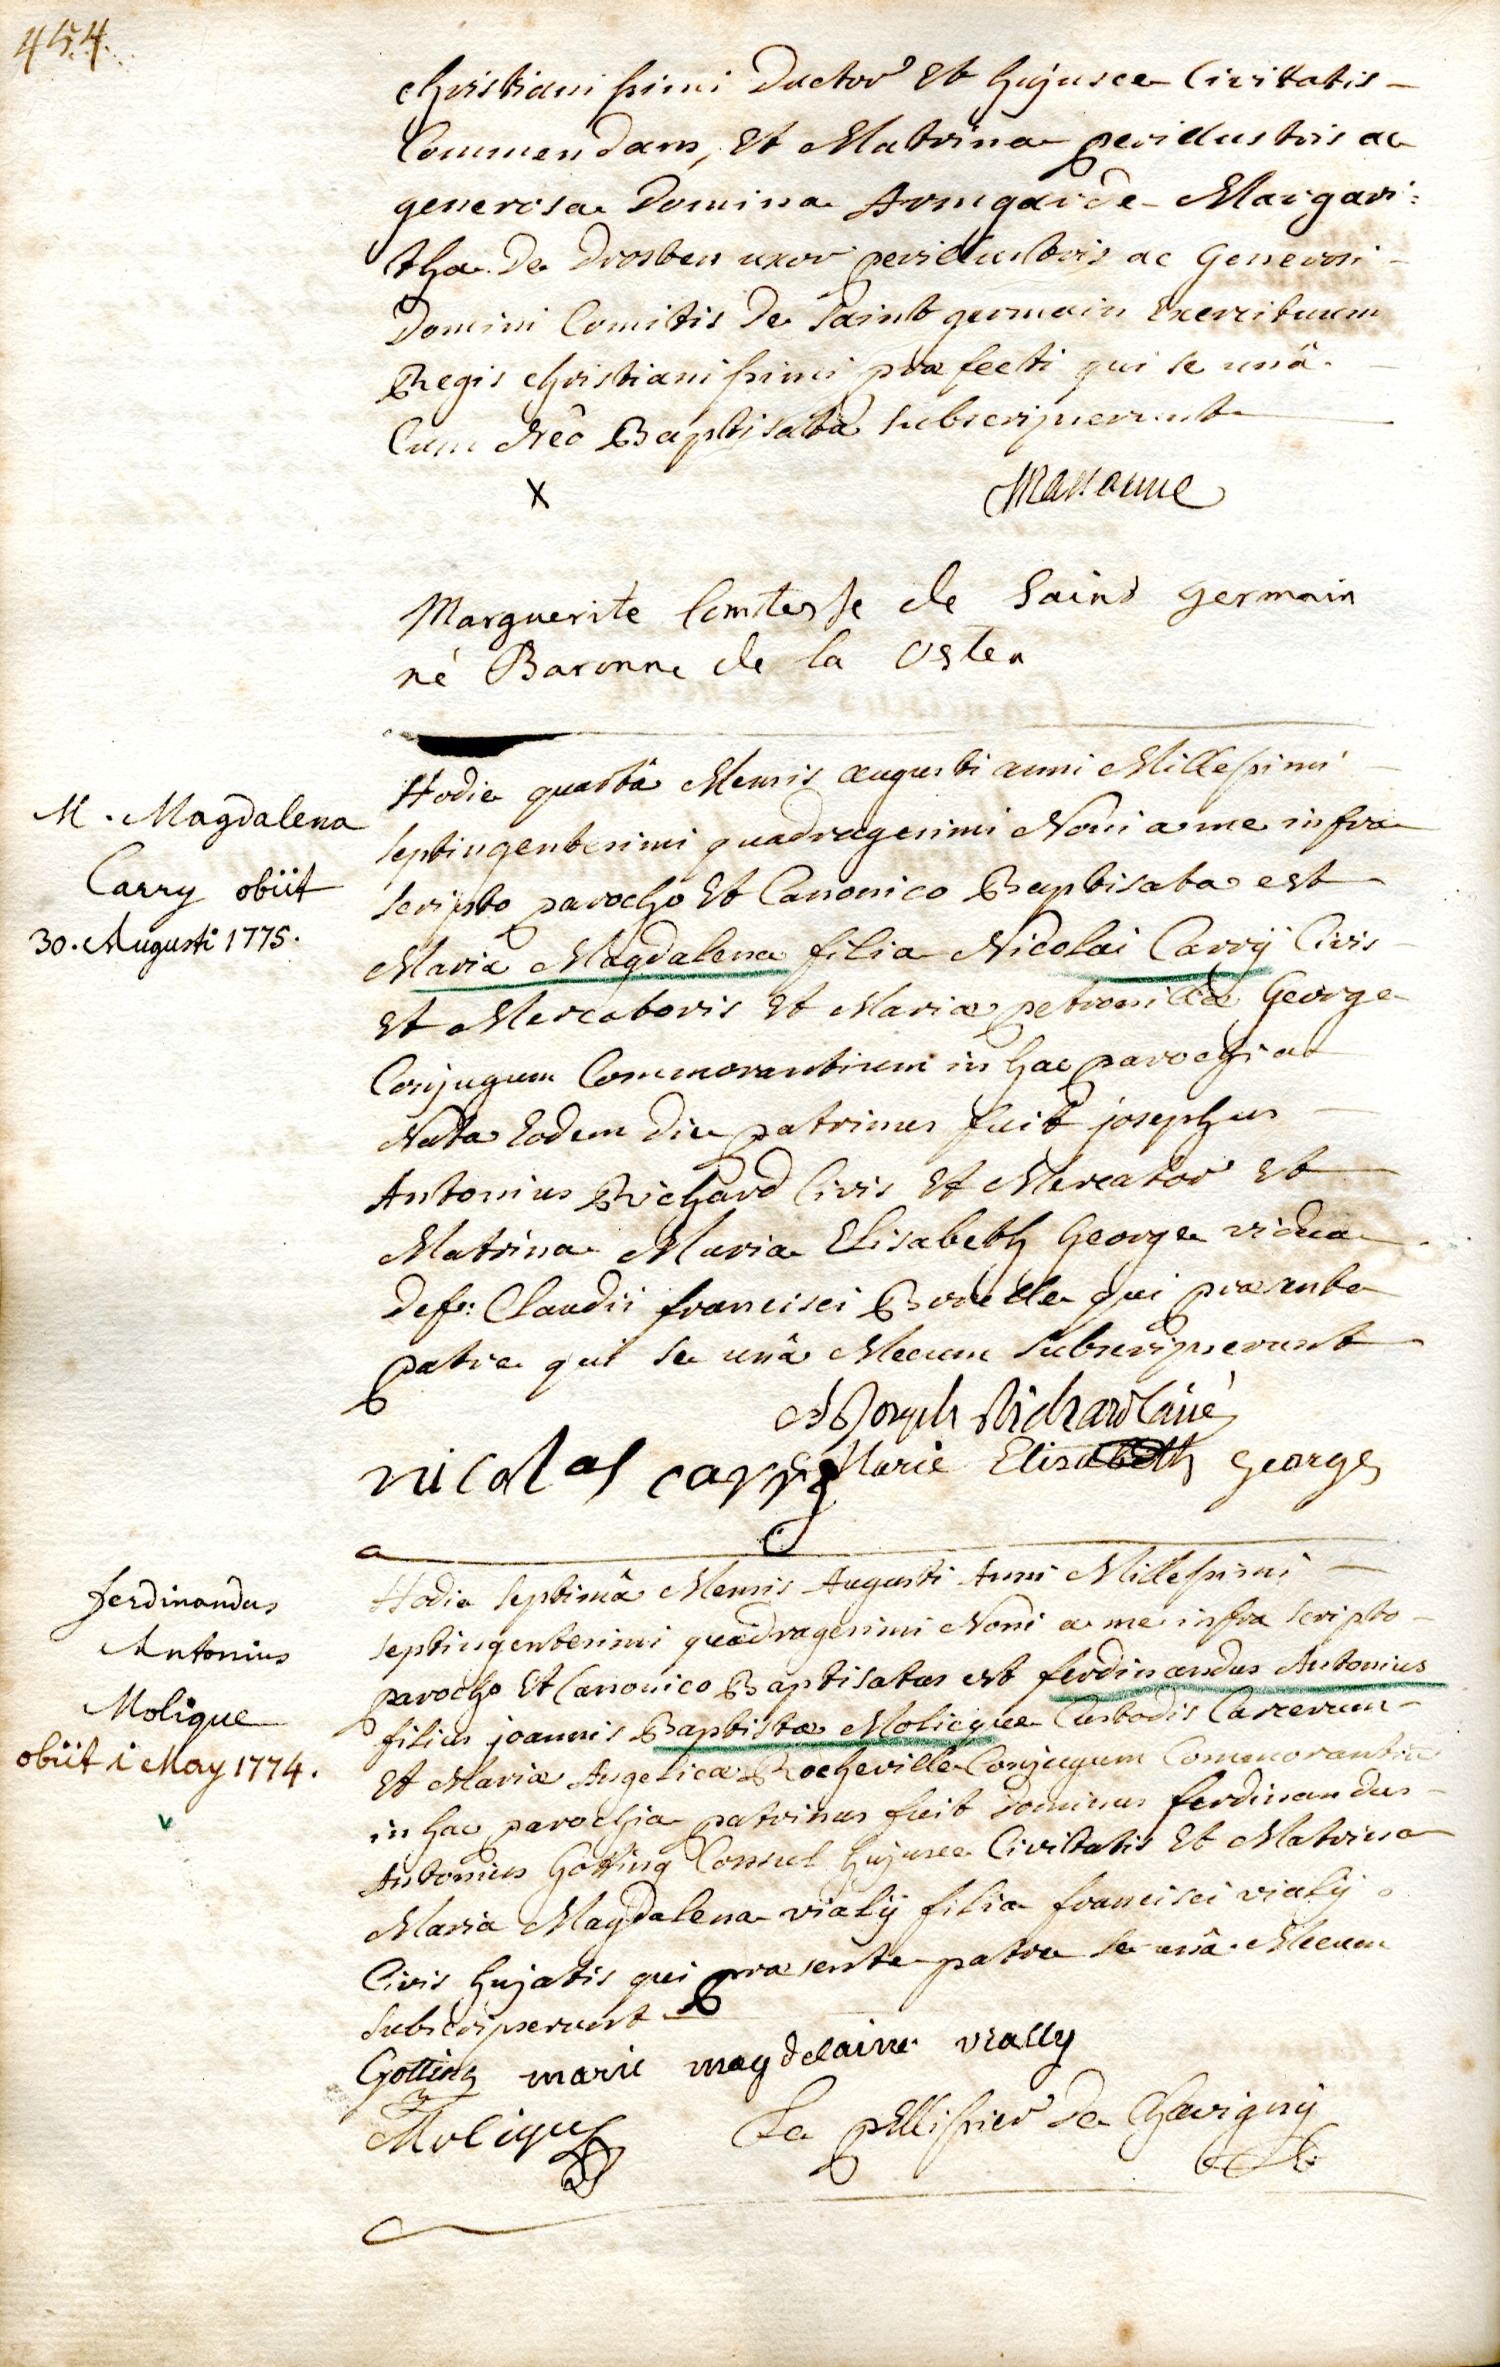 454.
christianissimi Ductor Et hujusce Civitatis
Commendans, Et Matrina perillustris ac
generosa Domina Armgarde Margari:
tha De Drosten uxor perillustris ac Generosi
Domini Comitis De Saint germain Exercituum
Regis christianissimi præfecti qui se unâ
Cum Neô Baptisatâ subscripserunt
X
Marguerite Comtesse de Saint germain
né Baronne de la Osten
M. Magdalena
Carry obiit
30. Augusti 1775.
Hodie quartâ Mensis augusti anni Millesimi
septingentesimi quadragesimi Noni a me infra
scripto parocho Et Canonico Baptisata est
Maria Magdalena filia Nicolai Carrÿ Civis
Et Mercatoris Et Mariæ petronillæ George
Conjugum Commorantium in hac parochia
Nata Eodem Die patrinus fuit josephus
Antonius Richard Civis Et Mercator Et
Matrina Maria Elisabeth George vidua
def: Claudii francisci qui præsente
patre qui se unâ Mecum subscripserunt
A Joseph Richard l'ainé
nicolas carry Marie Elisabeth george
ferdinandus
Antonius
Molique
obiit i May 1774.
v
Hodie septimâ Mensis Augusti Anni Millesimi
septingentesimi quadragesimi Noni a me infra scripto
parocho Et Canonico Baptisatus est ferdinandus Antonius
filius joannis Baptistæ Molicque Custodis Carcerum
Et Mariæ Angelicæ Rocheville Conjugum Commorantium
in hac parochia patrinus fuit Dominus ferdinandus
Antonius Gotting Consul hujusce Civitatis Et Matrina
Maria Magdalena vialÿ filia francisci vialÿ
Civis hujatis qui præsente patre se unâ Mecum
subscripserunt
Gotting marie magdelaine vially
Molique Le pellissier De Chavignÿ